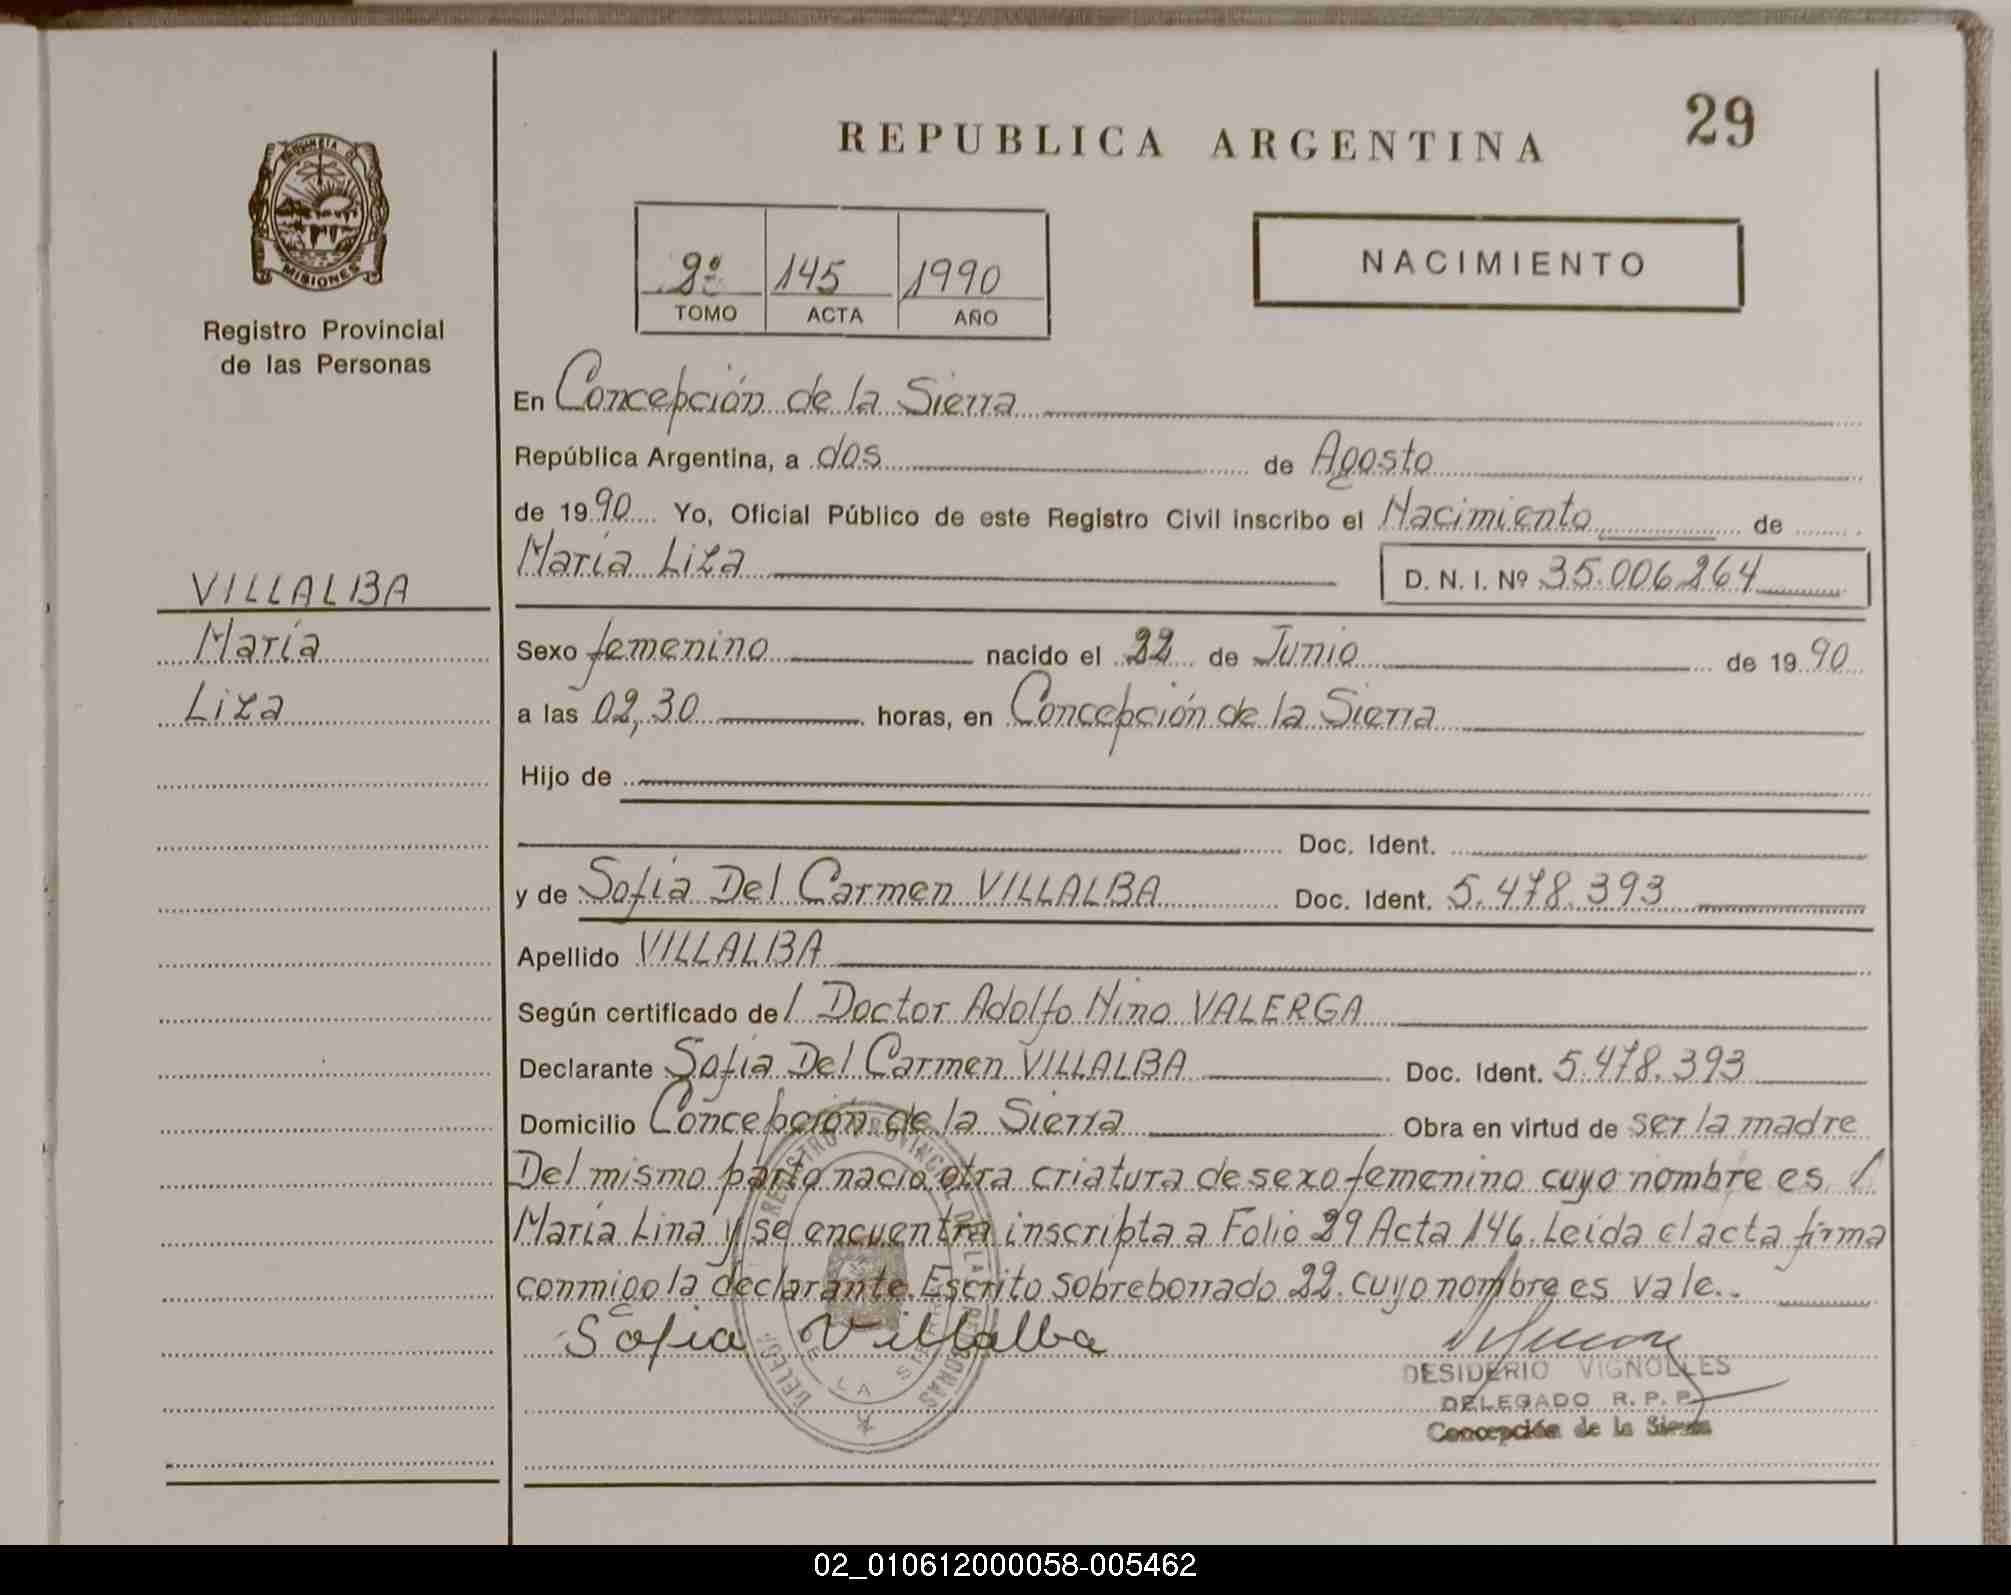 29
REPUBLICA ARGENTINA
PROVINCIA D
MISIONES
Registro Provincial
de las Personas
2º 145 1990
TOMO ACTA AÑO
NACIMIENTO
En Concepción de la Sierra
República Argentina, a dos de Agosto
de 1990 Yo, Oficial Público de este Registro Civil inscribo el Nacimiento de
María Liza D. N. I. Nº 35.006.264
VILLALBA
María
Liza
Sexo femenino nacido el 22 de Junio de 1990
a las 02,30 horas, en Concepción de la Sierra
Hijo de
Doc. Ident.
y de Sofia Del Carmen VILLALBA Doc. Ident. 5.478.393
Apellido VILLALBA
Según certificado del Doctor Adolfo Nino VALERGA
Declarante Sofia Del Carmen VILLALBA Doc. Ident. 5.478.393
Domicilio Concepción de la Sierra Obra en virtud de ser la madre
Del mismo parto nacio otra criatura de sexo femenino cuyo nombre es
María Lina y se encuentra inscripta a Folio 29 Acta 146. Leída el acta firma
conmigo la declarante. Escrito sobreborrado 22. cuyo nombre es vale..
Sofia Villalba
REGISTRO PROVINCIAL DE LAS PERSONAS
DELEG.
DE LA SIERRA
DESIDERIO VIGNOLLES
DELEGADO R. P. P.
Concepción de la Sierra
02_010612000058-005462